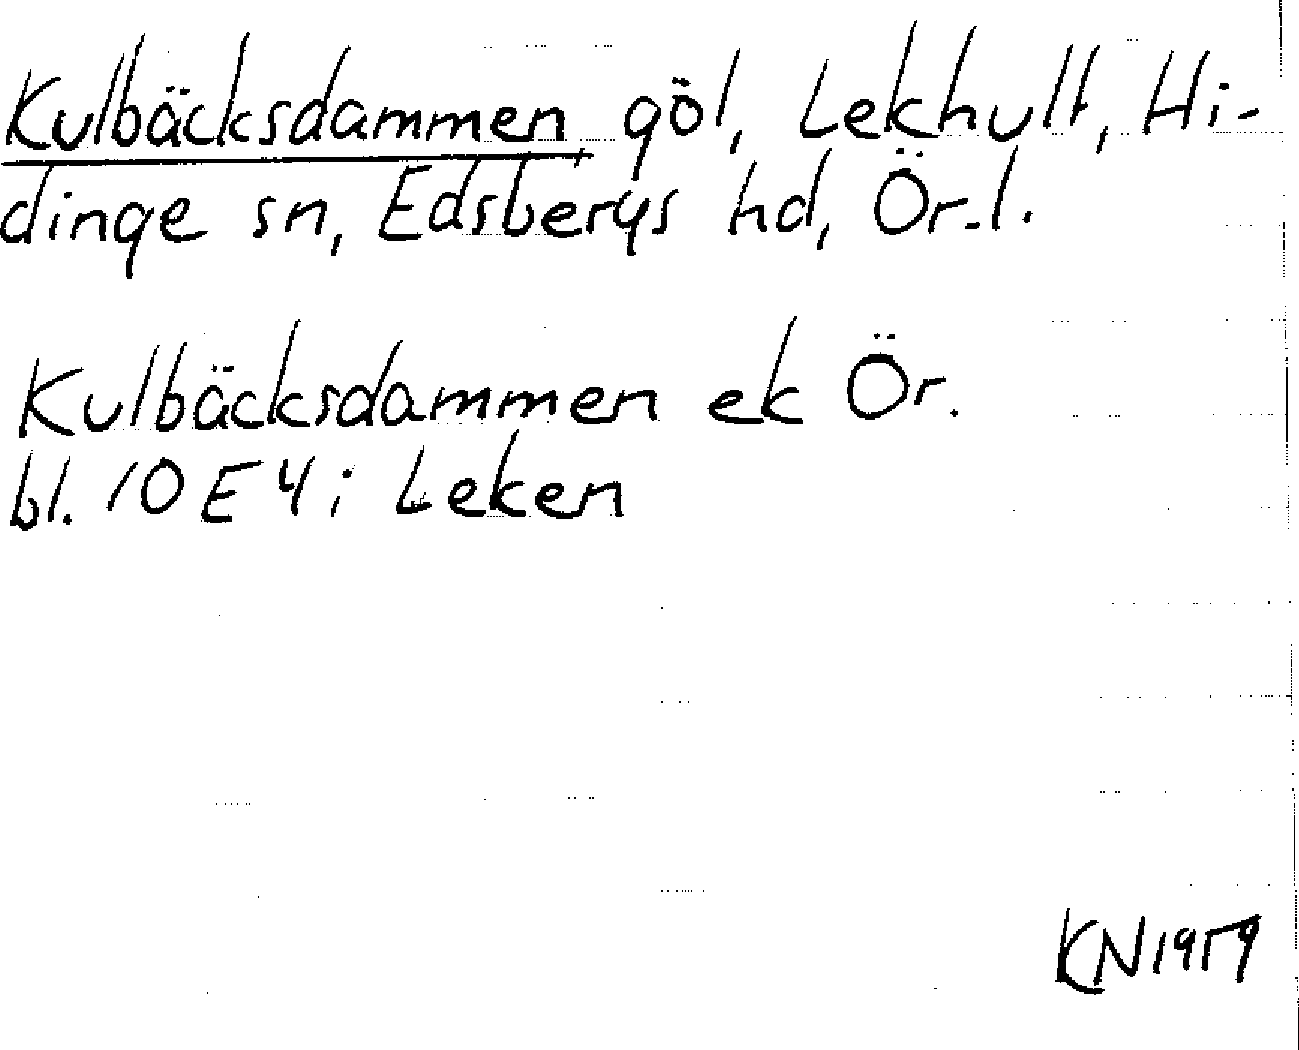 Kulbäcksdammen, göl, Lekhult, Hi-
dinge sn, Edsbergs hd, Ör.l.
Kulbäcksdammen ek Ör.
bl. 10 E 4 i Leken